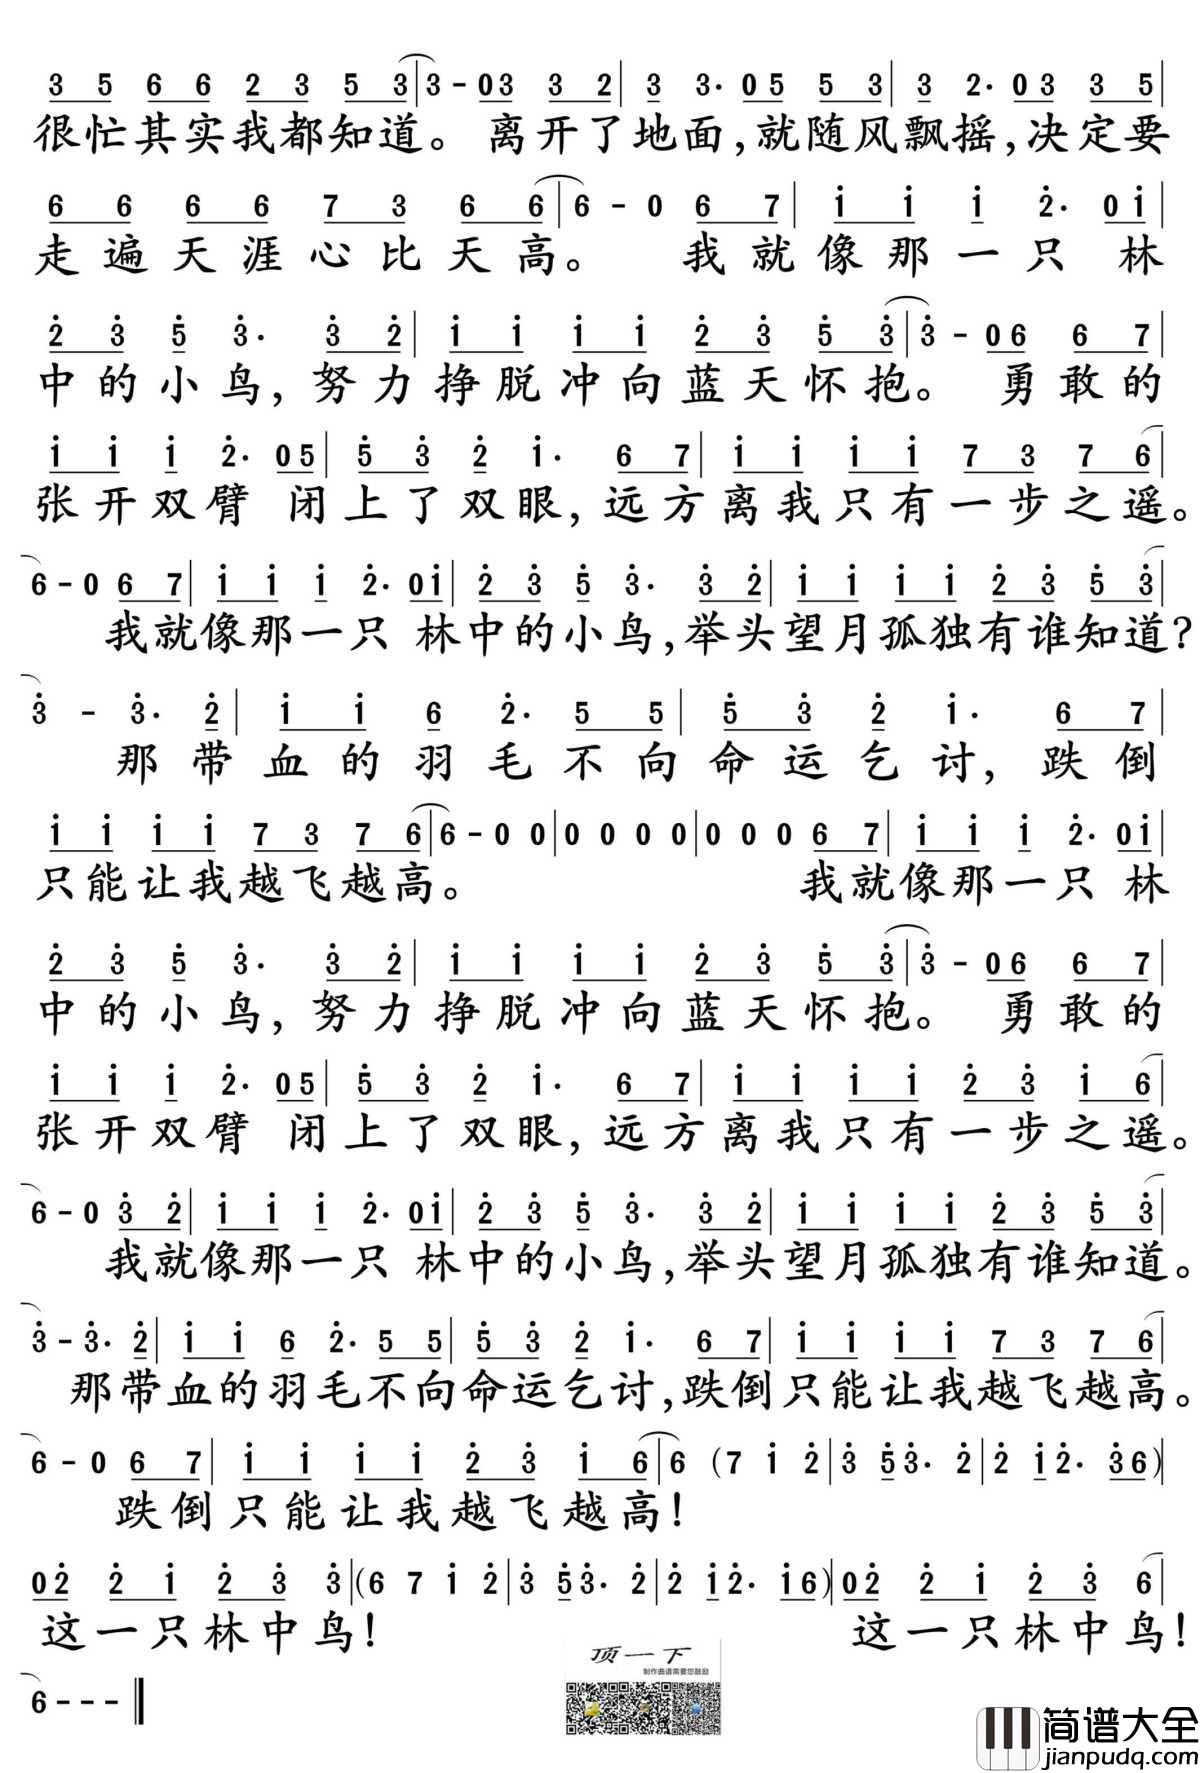 3 5 6 6 2 3 5 3 | 3 - 0 3 3 2 | 3 3· 0 5 5 3 | 3 2· 0 3 3 5 |
很忙其实我都知道。离开了地面,就随风飘摇,决定要
6 6 6 6 7 3 6 6 | 6 - 0 6 7 | i i i 2· 0 i |
走遍天涯心比天高。 我就像那一只 林
2 3 5 3· 3 2 | i i i i 2 3 5 3 | 3 - 0 6 6 7 |
中的小鸟,努力挣脱冲向蓝天怀抱。 勇敢的
i i i 2· 0 5 | 5 3 2 i· 6 7 | i i i i 7 3 7 6 |
张开双臂 闭上了双眼,远方离我只有一步之遥。
6 - 0 6 7 | i i i 2· 0 i | 2 3 5 3· 3 2 | i i i i 2 3 5 3 |
我就像那一只 林中的小鸟,举头望月孤独有谁知道?
3 - 3· 2 | i i 6 2· 5 5 | 5 3 2 i· 6 7 |
那带血的羽毛不向命运乞讨,跌倒
i i i i 7 3 7 6 | 6 - 0 0 | 0 0 0 0 | 0 0 0 6 7 | i i i 2· 0 i |
只能让我越飞越高。 我就像那一只 林
2 3 5 3· 3 2 | i i i i 2 3 5 3 | 3 - 0 6 6 7 |
中的小鸟,努力挣脱冲向蓝天怀抱。 勇敢的
i i i 2· 0 5 | 5 3 2 i· 6 7 | i i i i 2 3 i 6 |
张开双臂 闭上了双眼,远方离我只有一步之遥。
6 - 0 3 2 | i i i 2· 0 i | 2 3 5 3· 3 2 | i i i i 2 3 5 3 |
我就像那一只 林中的小鸟,举头望月孤独有谁知道。
3 - 3· 2 | i i 6 2· 5 5 | 5 3 2 i· 6 7 | i i i i 7 3 7 6 |
那带血的羽毛不向命运乞讨,跌倒只能让我越飞越高。
6 - 0 6 7 | i i i i 2 3 i 6 | 6 (7 i 2 | 3 5 3· 2 | 2 i 2· 3 6) |
跌倒只能让我越飞越高!
0 2 2 i 2 3 3 | (6 7 i 2 | 3 5 3· 2 | 2 i 2· i 6) | 0 2 2 i 2 3 6 |
这一只林中鸟! 这一只林中鸟!
6 - - - ‖
顶一下
制作曲谱需要您鼓励
简谱大全
jianpudq.com